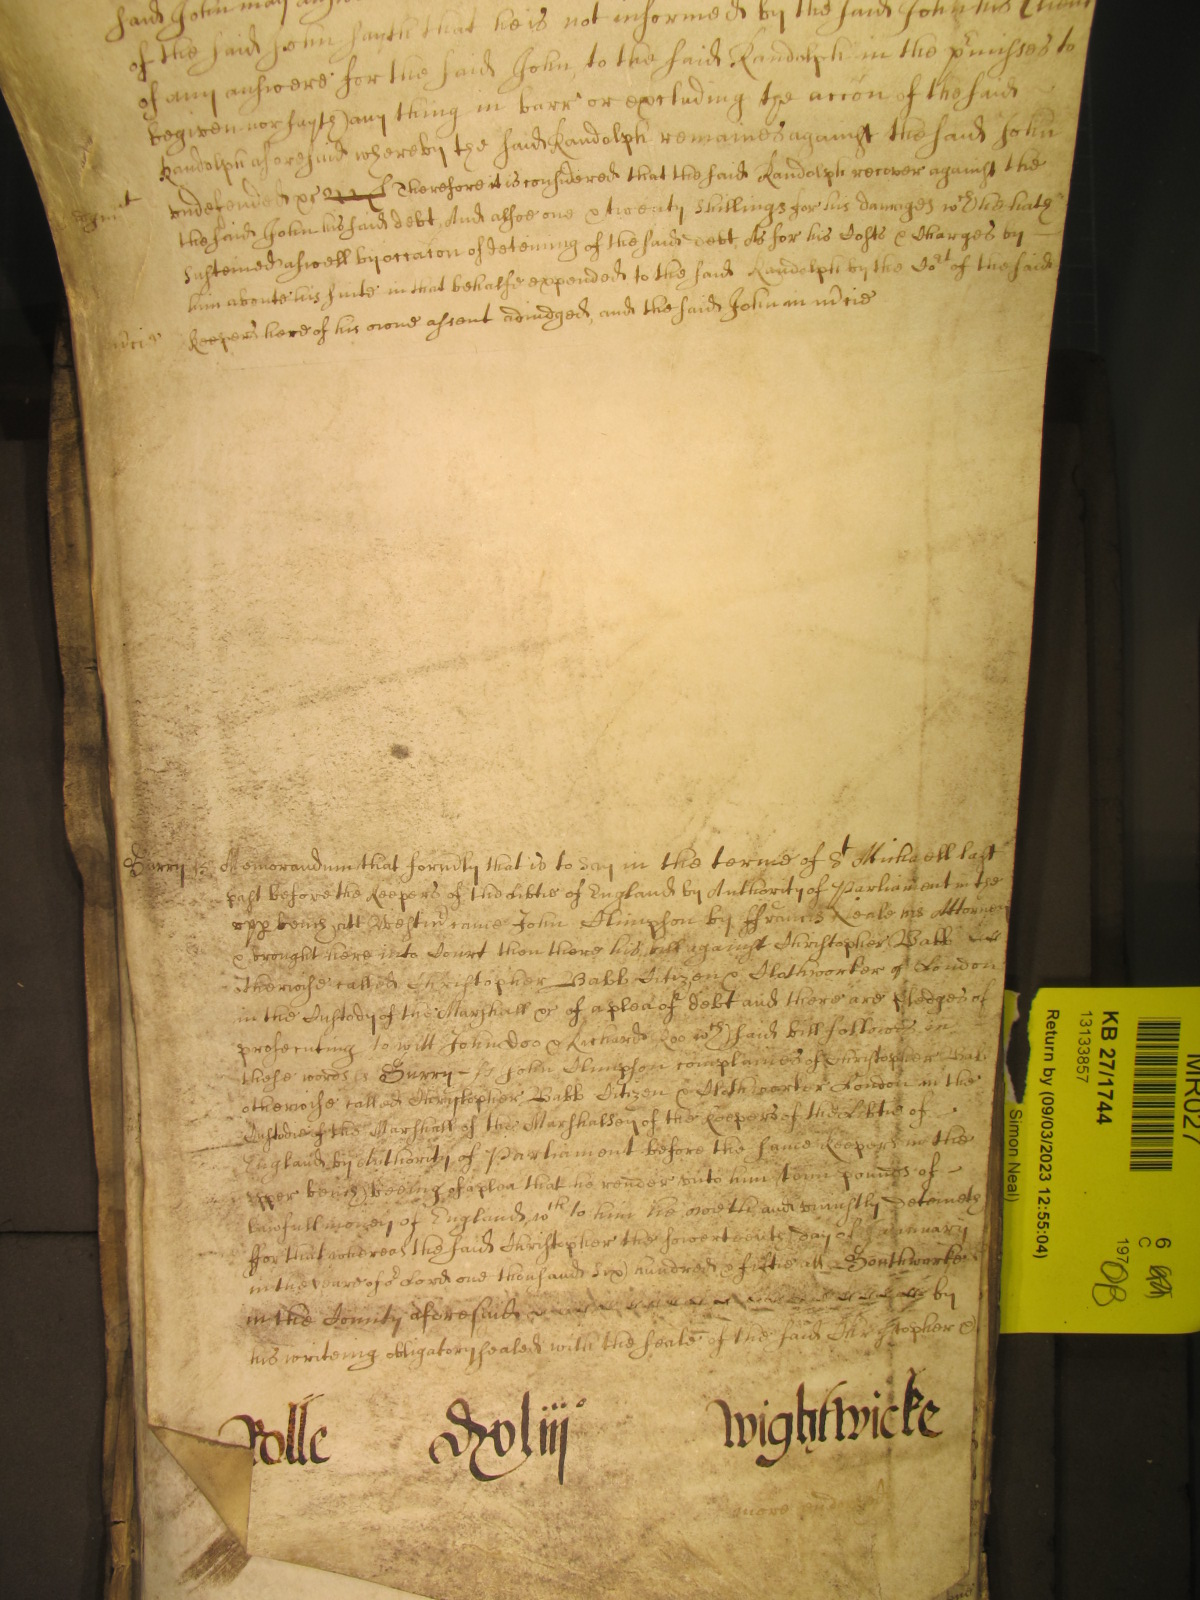 said John may answ
of the said John sayth that he is not informed by the said John his Client
of any answere for the said John, to the said Randolph in the pmisses to
be given nor sayth any thing in barr or excluding the accon of the said
Randolph aforesaid whereby the said Randolph remaines against the said John
undefended &c Therefore it is considered that the said Randolph recover against the
the said John his said debt, And alsoe one & twenty shillings for his damages wch he hath
susteined aswell by occasion of deteining of the said debt, As for his Costs & Charges by
him aboute his suite in that behalfe expended to the said Randolph by the Cort of the said
mcie Keepers here of his owne assent adiudged, and the said John in mcie
Surry ss Memorandum that formly that is to say in the terme of St Michaell last
past before the Keepers of the libtie of England by Authority of Parliament in the
upp bench att Westmr came John Climpson by Francis Neale his Attorney
& brought here into Court then there his bill against Christopher Babb
otherwise called Christopher Babb Citizen & Clothworker of London
in the Custody of the Marshall &c of a plea of debt and there are pledges of
prosecuting to witt John Doo & Richard Roo wch said bill followes in
these words ss Surry ss John Climpson complaines of Christopher Bab
otherwise called Christopher Babb Citizen & Clothworker London in the
Custodie of the Marshall of the Marshalsey of the Keepers of the Libtie of
England by Authority of Parliament before the same Keepers in the
upper bench beeing of a plea that he render unto him tenn pounds of
lawfull money of England wch to him he oweth and uniustly deteineth
For that whereas the said Christopher the day of January
in the yeare of or Lord one thousand six hundred & fiftie att Southworke
in the County aforesaid by
his writeing obligatory sealed with the seale of the said Christopher &
Rolle dxliij Wightwicke
MR027
KB 27/1744
13133857
Return by (09/03/2023 12:55:04)
Simon Neal)
6
C
197